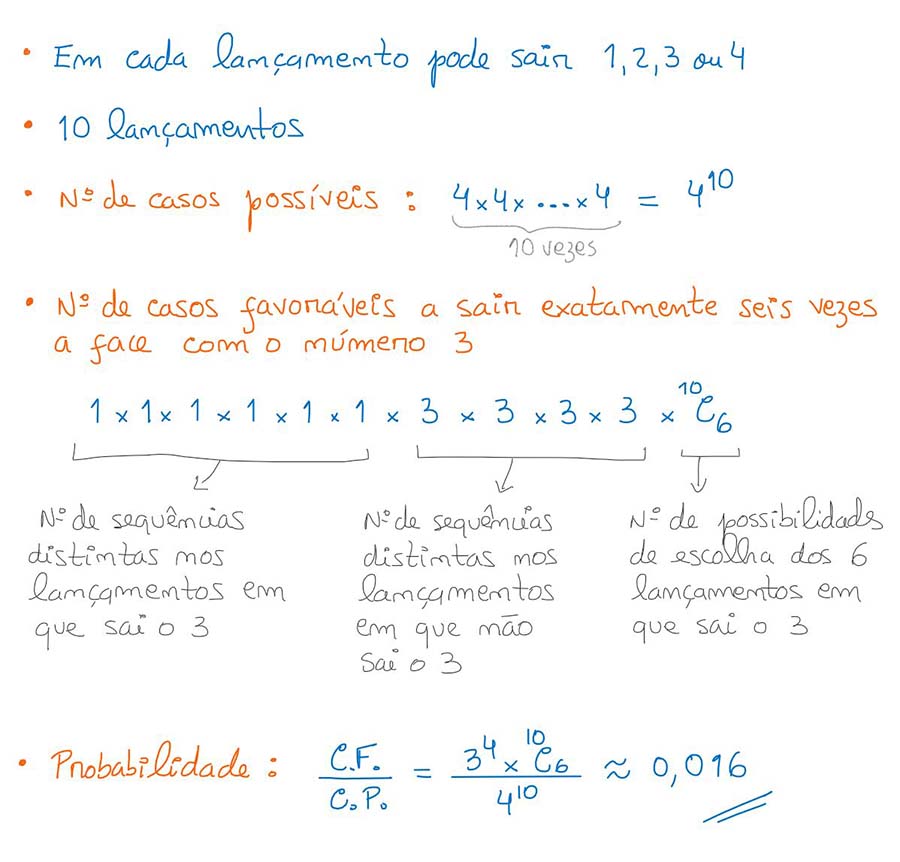 • Em cada lançamento pode sair 1, 2, 3 ou 4
• 10 lançamentos
• Nº de casos possíveis : 4 × 4 × ... × 4 = 4¹⁰
10 vezes
• Nº de casos favoráveis a sair exatamente seis vezes
a face com o número 3
1 × 1 × 1 × 1 × 1 × 1 × 3 × 3 × 3 × 3 × ¹⁰C₆
Nº de sequências
distintas nos
lançamentos em
que sai o 3
Nº de sequências
distintas nos
lançamentos
em que não
sai o 3
Nº de possibilidades
de escolha dos 6
lançamentos em
que sai o 3
• Probabilidade : C.F. / C.P. = 3⁴ × ¹⁰C₆ / 4¹⁰ ≈ 0,016